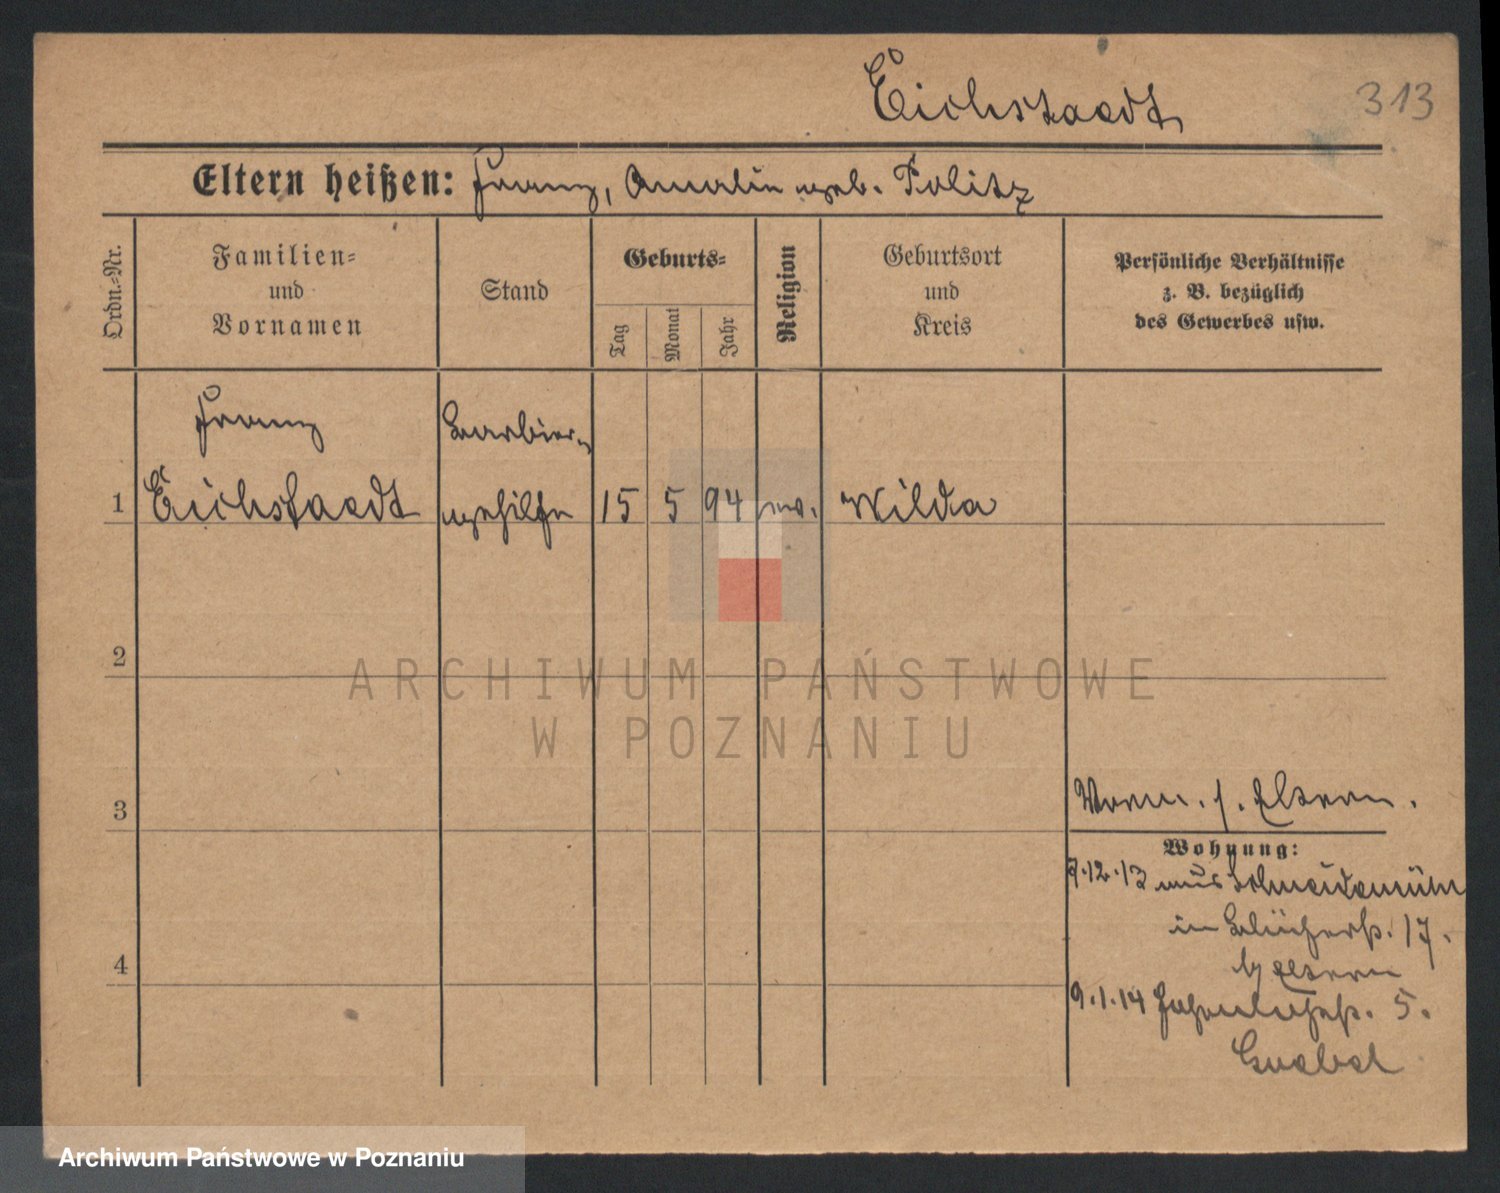 Eichstaedt
313
Eltern heißen: Franz, Amalie geb. Politz
Ordn.-Nr.
Familien-
und
Vornamen
Stand
Geburts-
Tag
Monat
Jahr
Religion
Geburtsort
und
Kreis
Persönliche Verhältnisse
z. B. bezüglich
des Gewerbes usw.
Franz Barbier-
1 Eichstaedt gehilfe 15 5 94 ev. Wilda
2
ARCHIWUM PAŃSTWOWE
W POZNANIU
3
Vorm. s. Eltern.
Wohnung:
7.12.13 aus Schneidemühl
in Blücherstr. 17.
4
b/ Eltern
9.1.14 5.
Archiwum Państwowe w Poznaniu